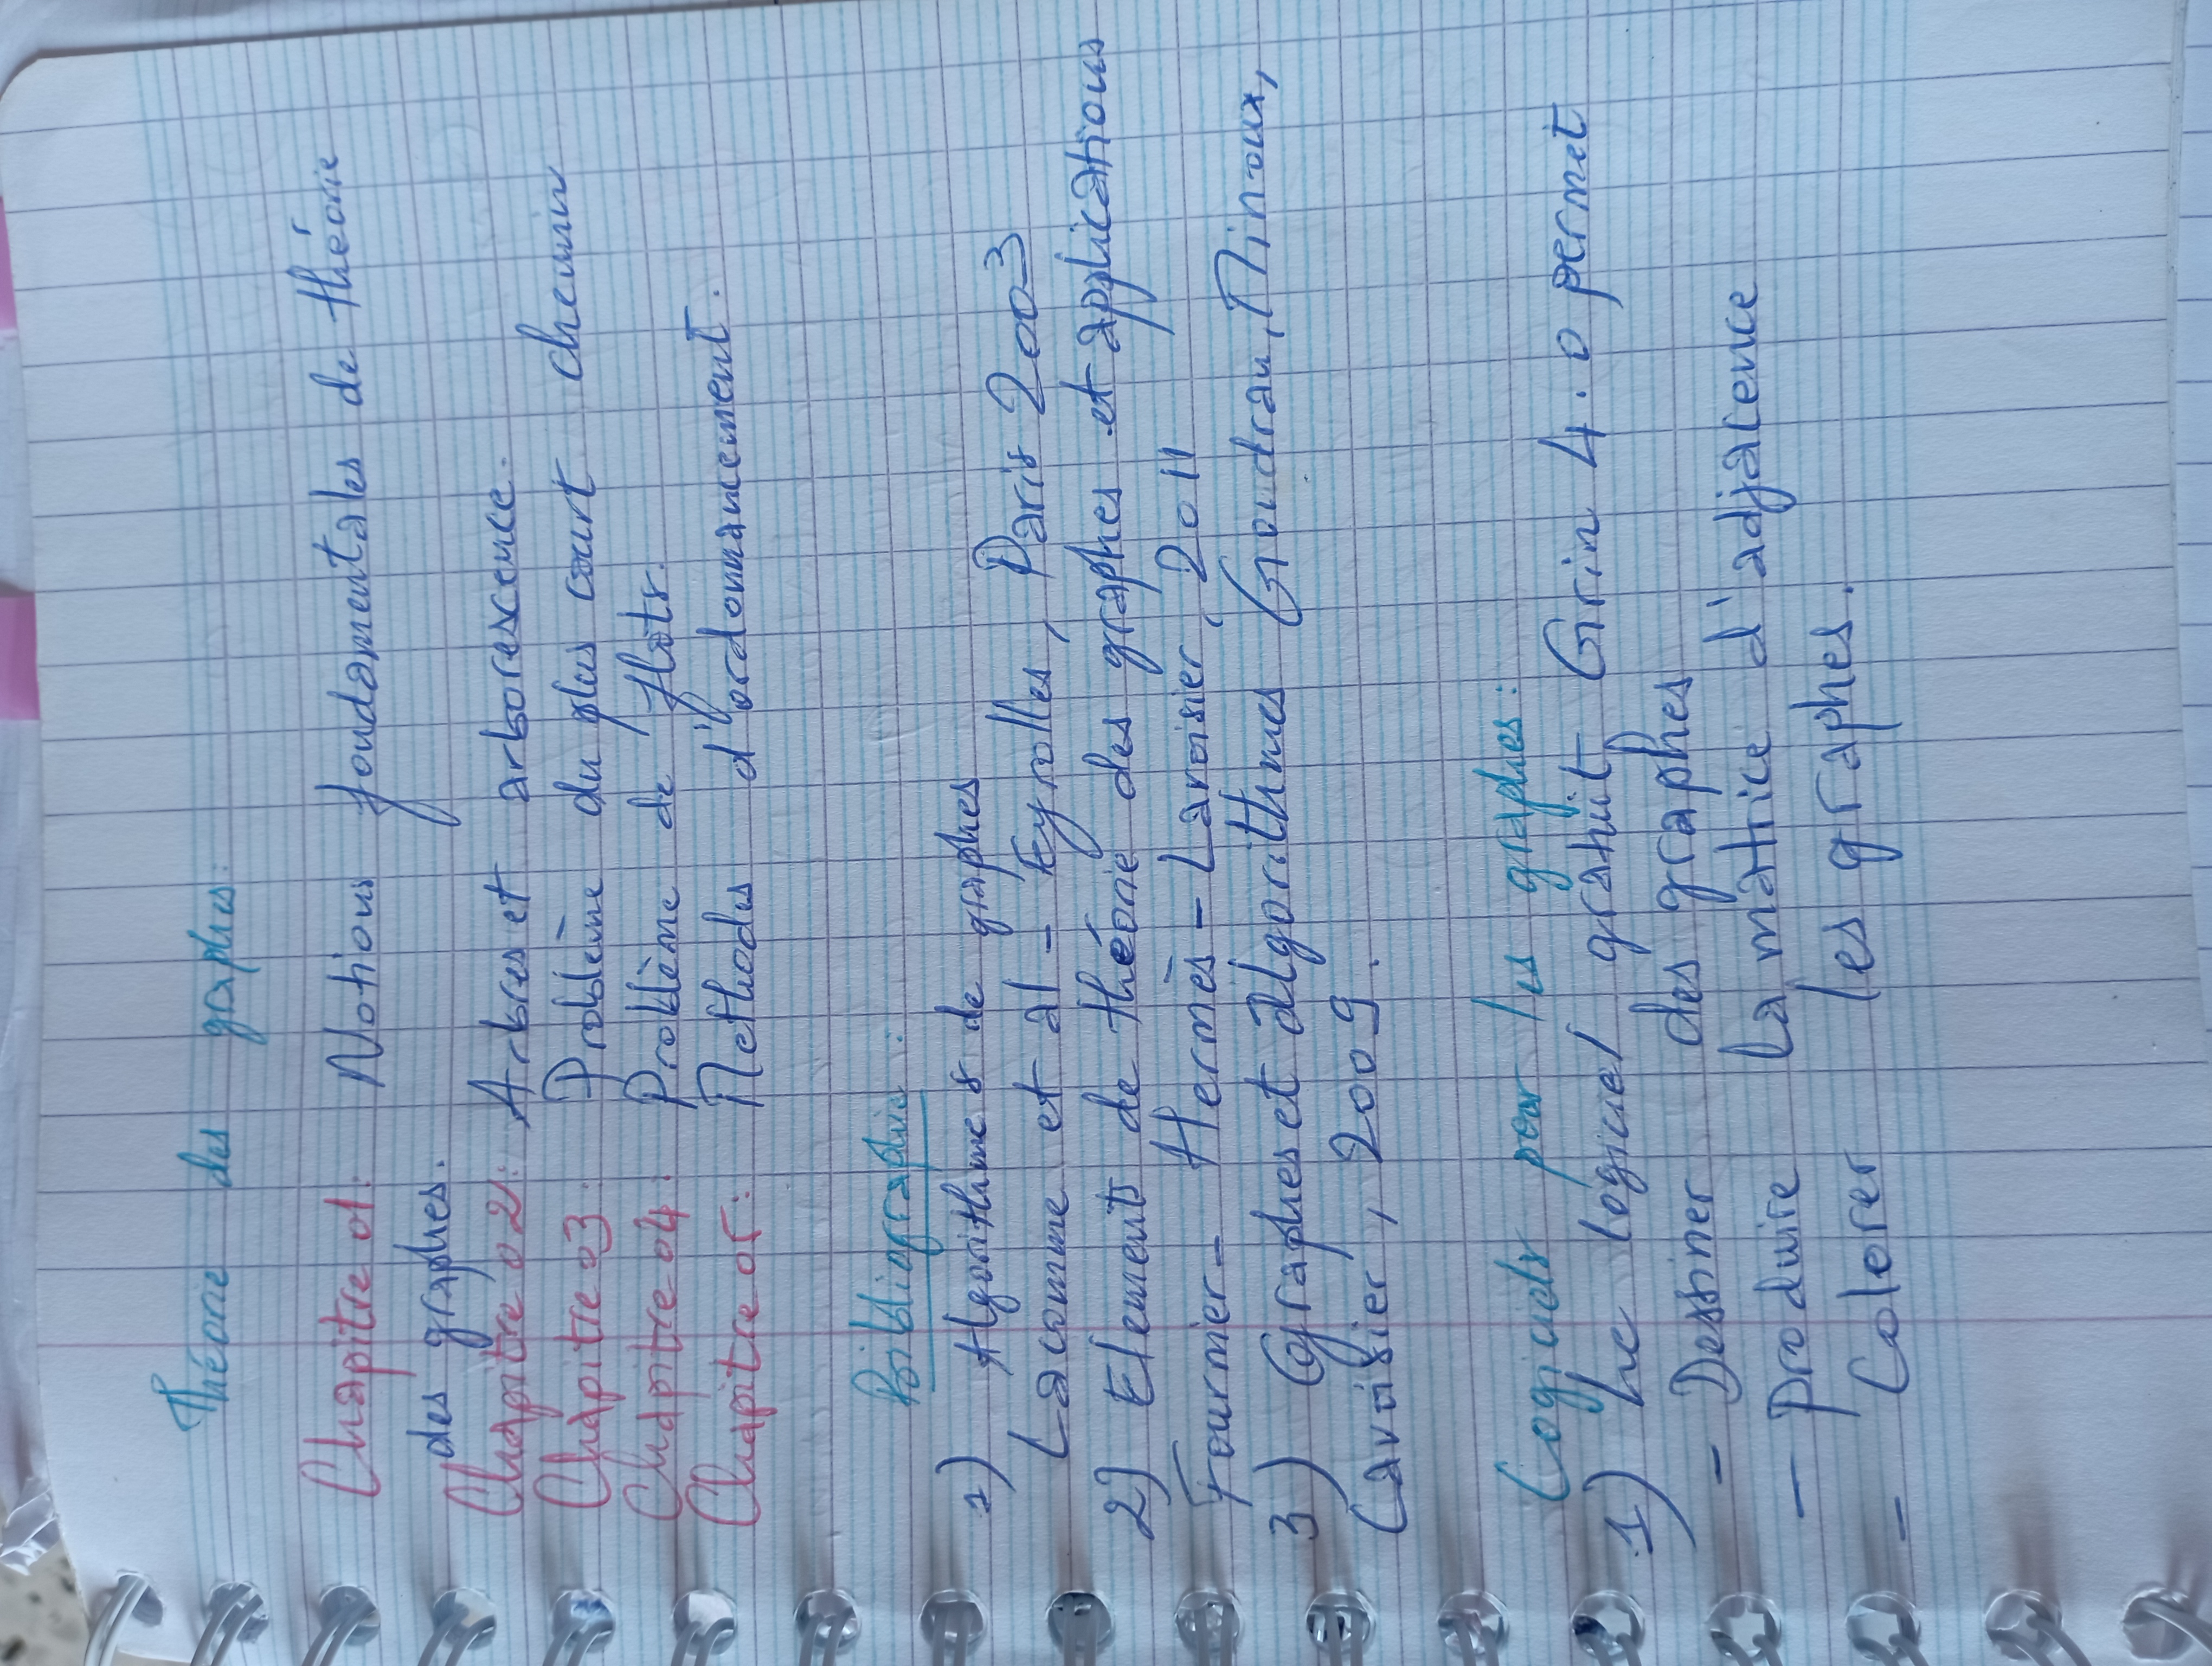 Théorie des graphes:
Chapitre 01: Notions fondamentales de théorie
des graphes.
Chapitre 02: Arbres et arborescence.
Chapitre 03: Problème du plus court chemin
Chapitre 04: Problème de flots.
Chapitre 05: Methodes d'ordonnancement.
Bibliographie:
1) Algorithmes de graphes
Lacomme et al - Eyrolles, Paris 2003
2) Elements de théorie des graphes et applications
Fournier - Hermès - Lavoisier, 2011
3) Graphes et algorithmes Goudran, Minoux,
Lavoisier, 2009.
Logiciels pour les graphes:
1) Le logiciel gratuit Grin 4.0 permet
- Dessiner des graphes
- produire la matrice d'adjacence
- Colorer les graphes.